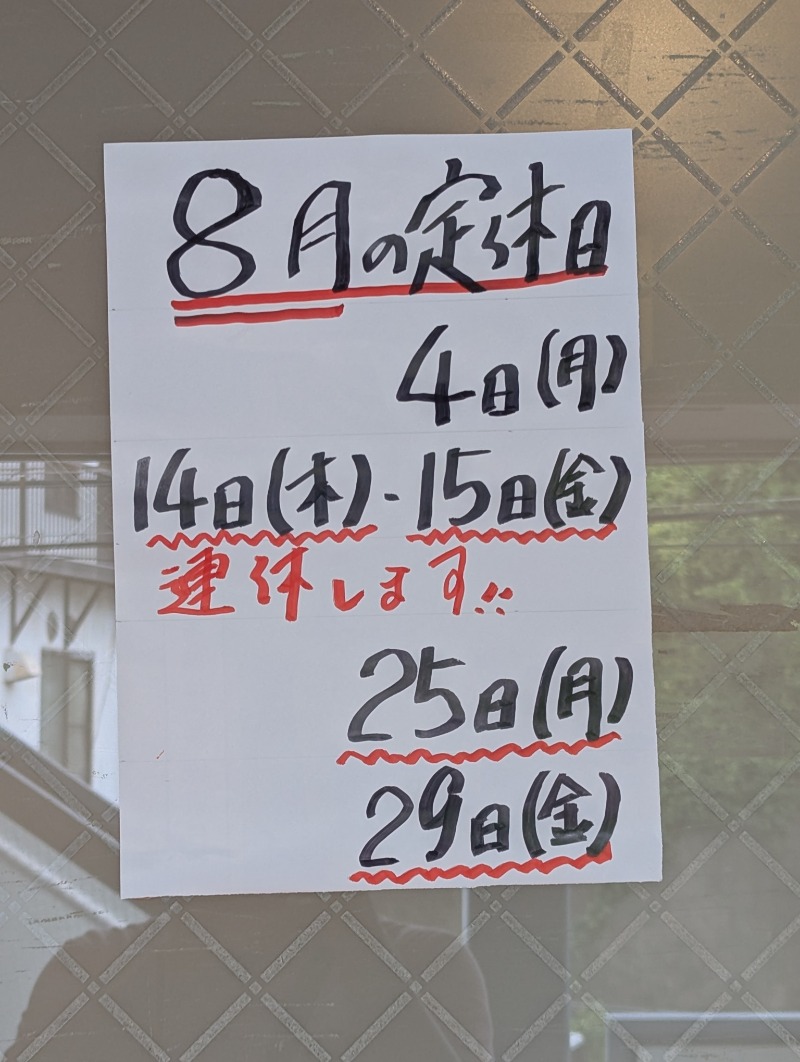 8月の定休日
4日(月)
14日(木)-15日(金)
連休します!!
25日(月)
29日(金)